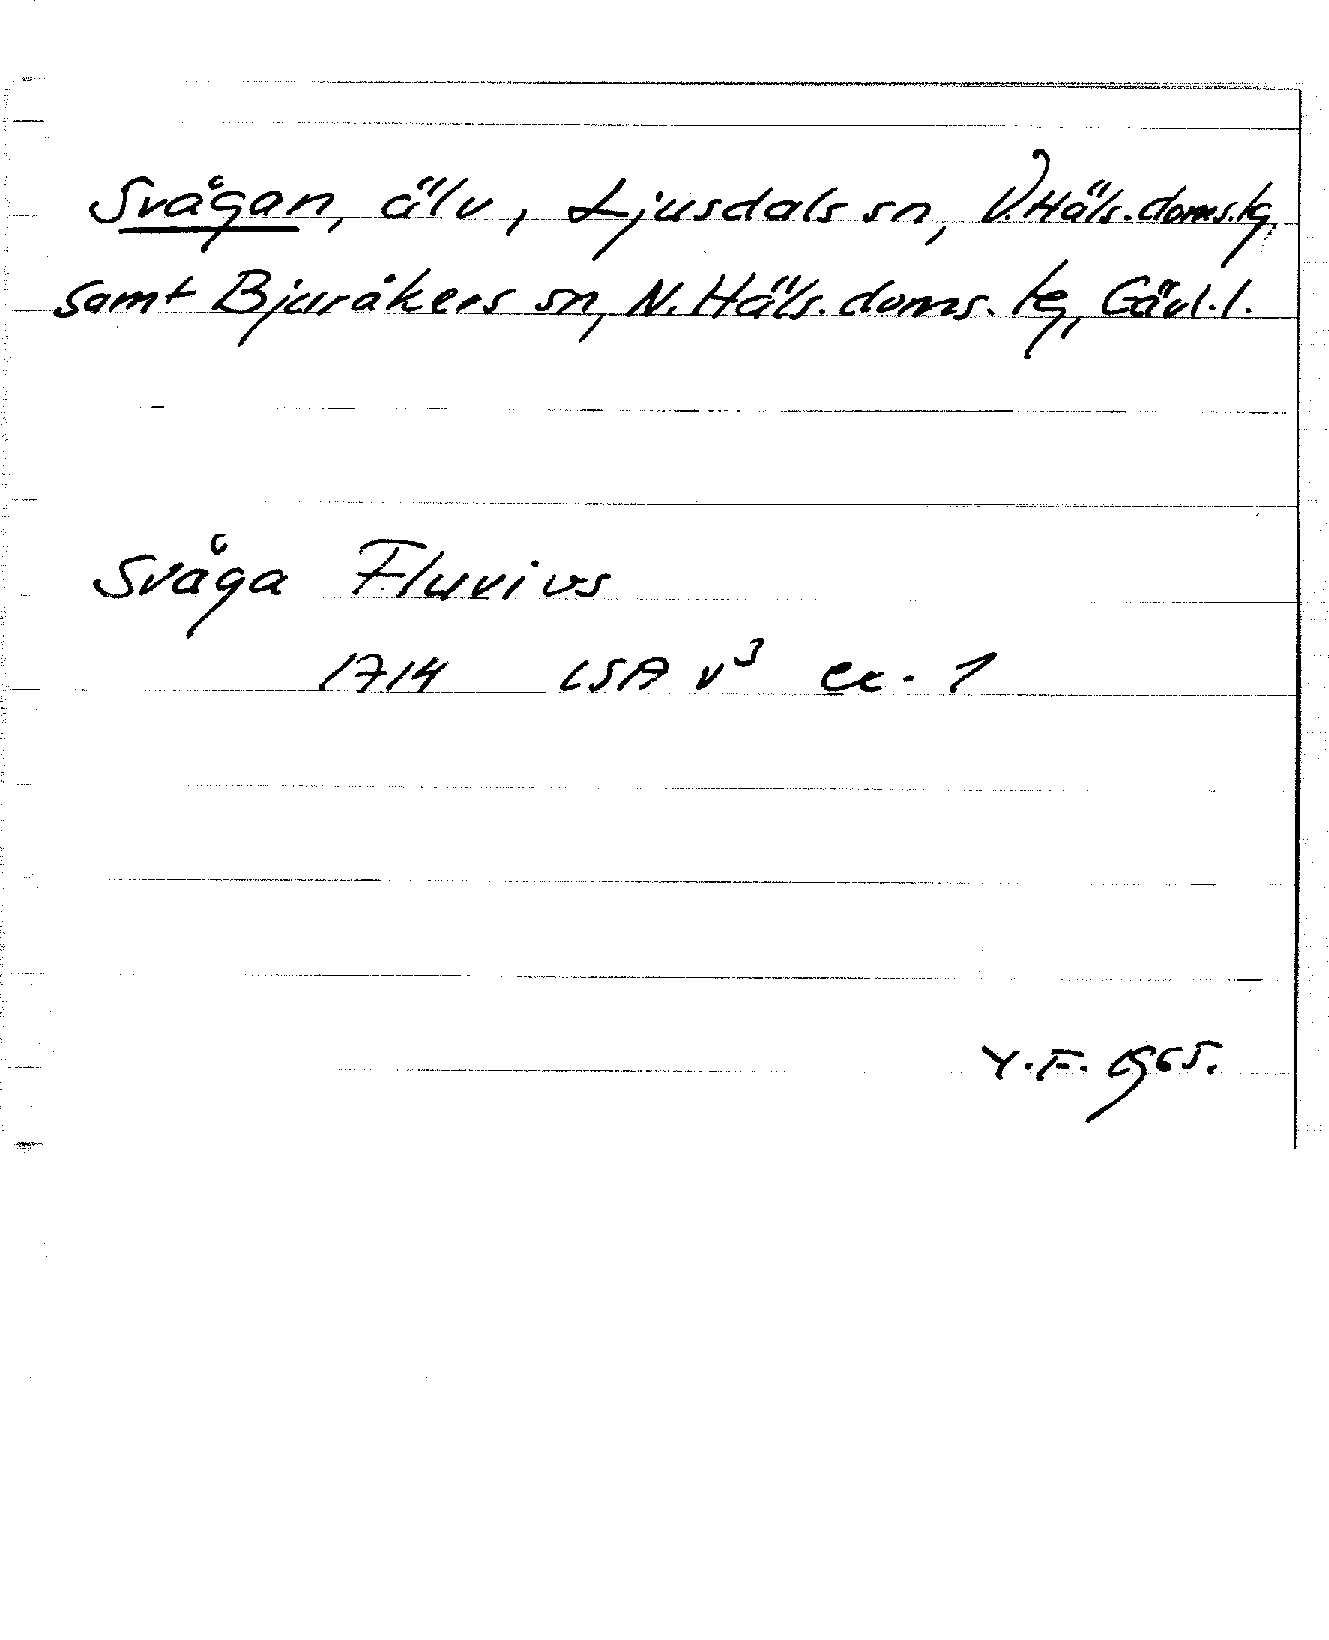 Svågan, älv, Ljusdals sn, V. Häls. doms. tg,
samt Bjuråkers sn, N. Häls. doms. tg, Gävl. l.
Svåga Fluvius
1714 LSA v³ ex. 1
Y. F. 1965.